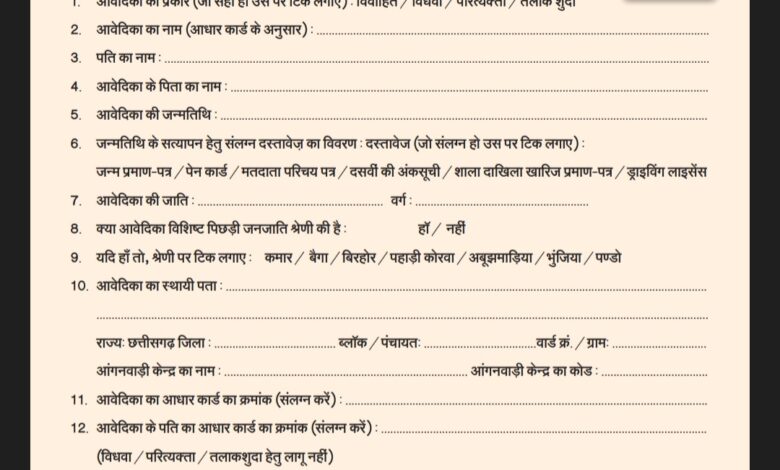 1. आवेदिका का प्रकार (जो सही हो उस पर टिक लगाए) : विवाहित / विधवा / परित्यक्ता / तलाक शुदा
2. आवेदिका का नाम (आधार कार्ड के अनुसार) :
3. पति का नाम :
4. आवेदिका के पिता का नाम :
5. आवेदिका की जन्मतिथि :
6. जन्मतिथि के सत्यापन हेतु संलग्न दस्तावेज़ का विवरण : दस्तावेज (जो संलग्न हो उस पर टिक लगाए) :
जन्म प्रमाण-पत्र / पेन कार्ड / मतदाता परिचय पत्र / दसवीं की अंकसूची / शाला दाखिला खारिज प्रमाण-पत्र / ड्राइविंग लाइसेंस
7. आवेदिका की जाति : वर्ग :
8. क्या आवेदिका विशिष्ट पिछड़ी जनजाति श्रेणी की है : हॉ / नहीं
9. यदि हाँ तो, श्रेणी पर टिक लगाए : कमार / बैगा / बिरहोर / पहाड़ी कोरवा / अबूझमाड़िया / भुंजिया / पण्डो
10. आवेदिका का स्थायी पता :
राज्य: छत्तीसगढ़ जिला : ब्लॉक / पंचायत: वार्ड क्रं. / ग्राम:
आंगनवाड़ी केन्द्र का नाम : आंगनवाड़ी केन्द्र का कोड :
11. आवेदिका का आधार कार्ड का क्रमांक (संलग्न करें) :
12. आवेदिका के पति का आधार कार्ड का क्रमांक (संलग्न करें) :
(विधवा / परित्यक्ता / तलाकशुदा हेतु लागू नहीं)